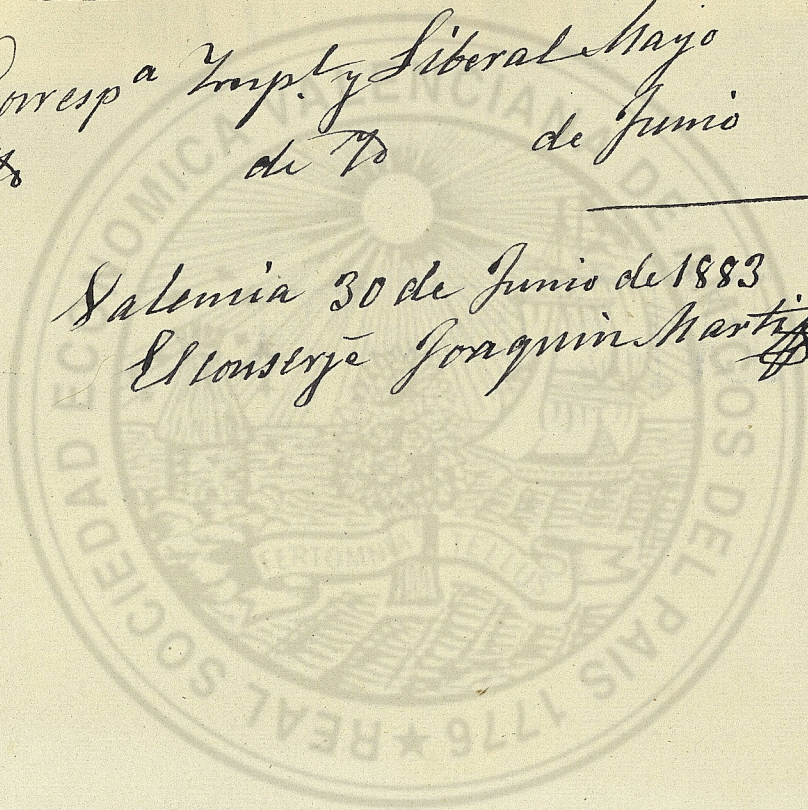 Corresp.ª Impl. y Liberal Mayo
de de Junio
Valencia 30 de Junio de 1883
El conserje Joaquin Marti
REAL SOCIEDAD ECONOMICA VALENCIANA DE AMIGOS DEL PAIS 1776
FERT OMNIA TELLUS